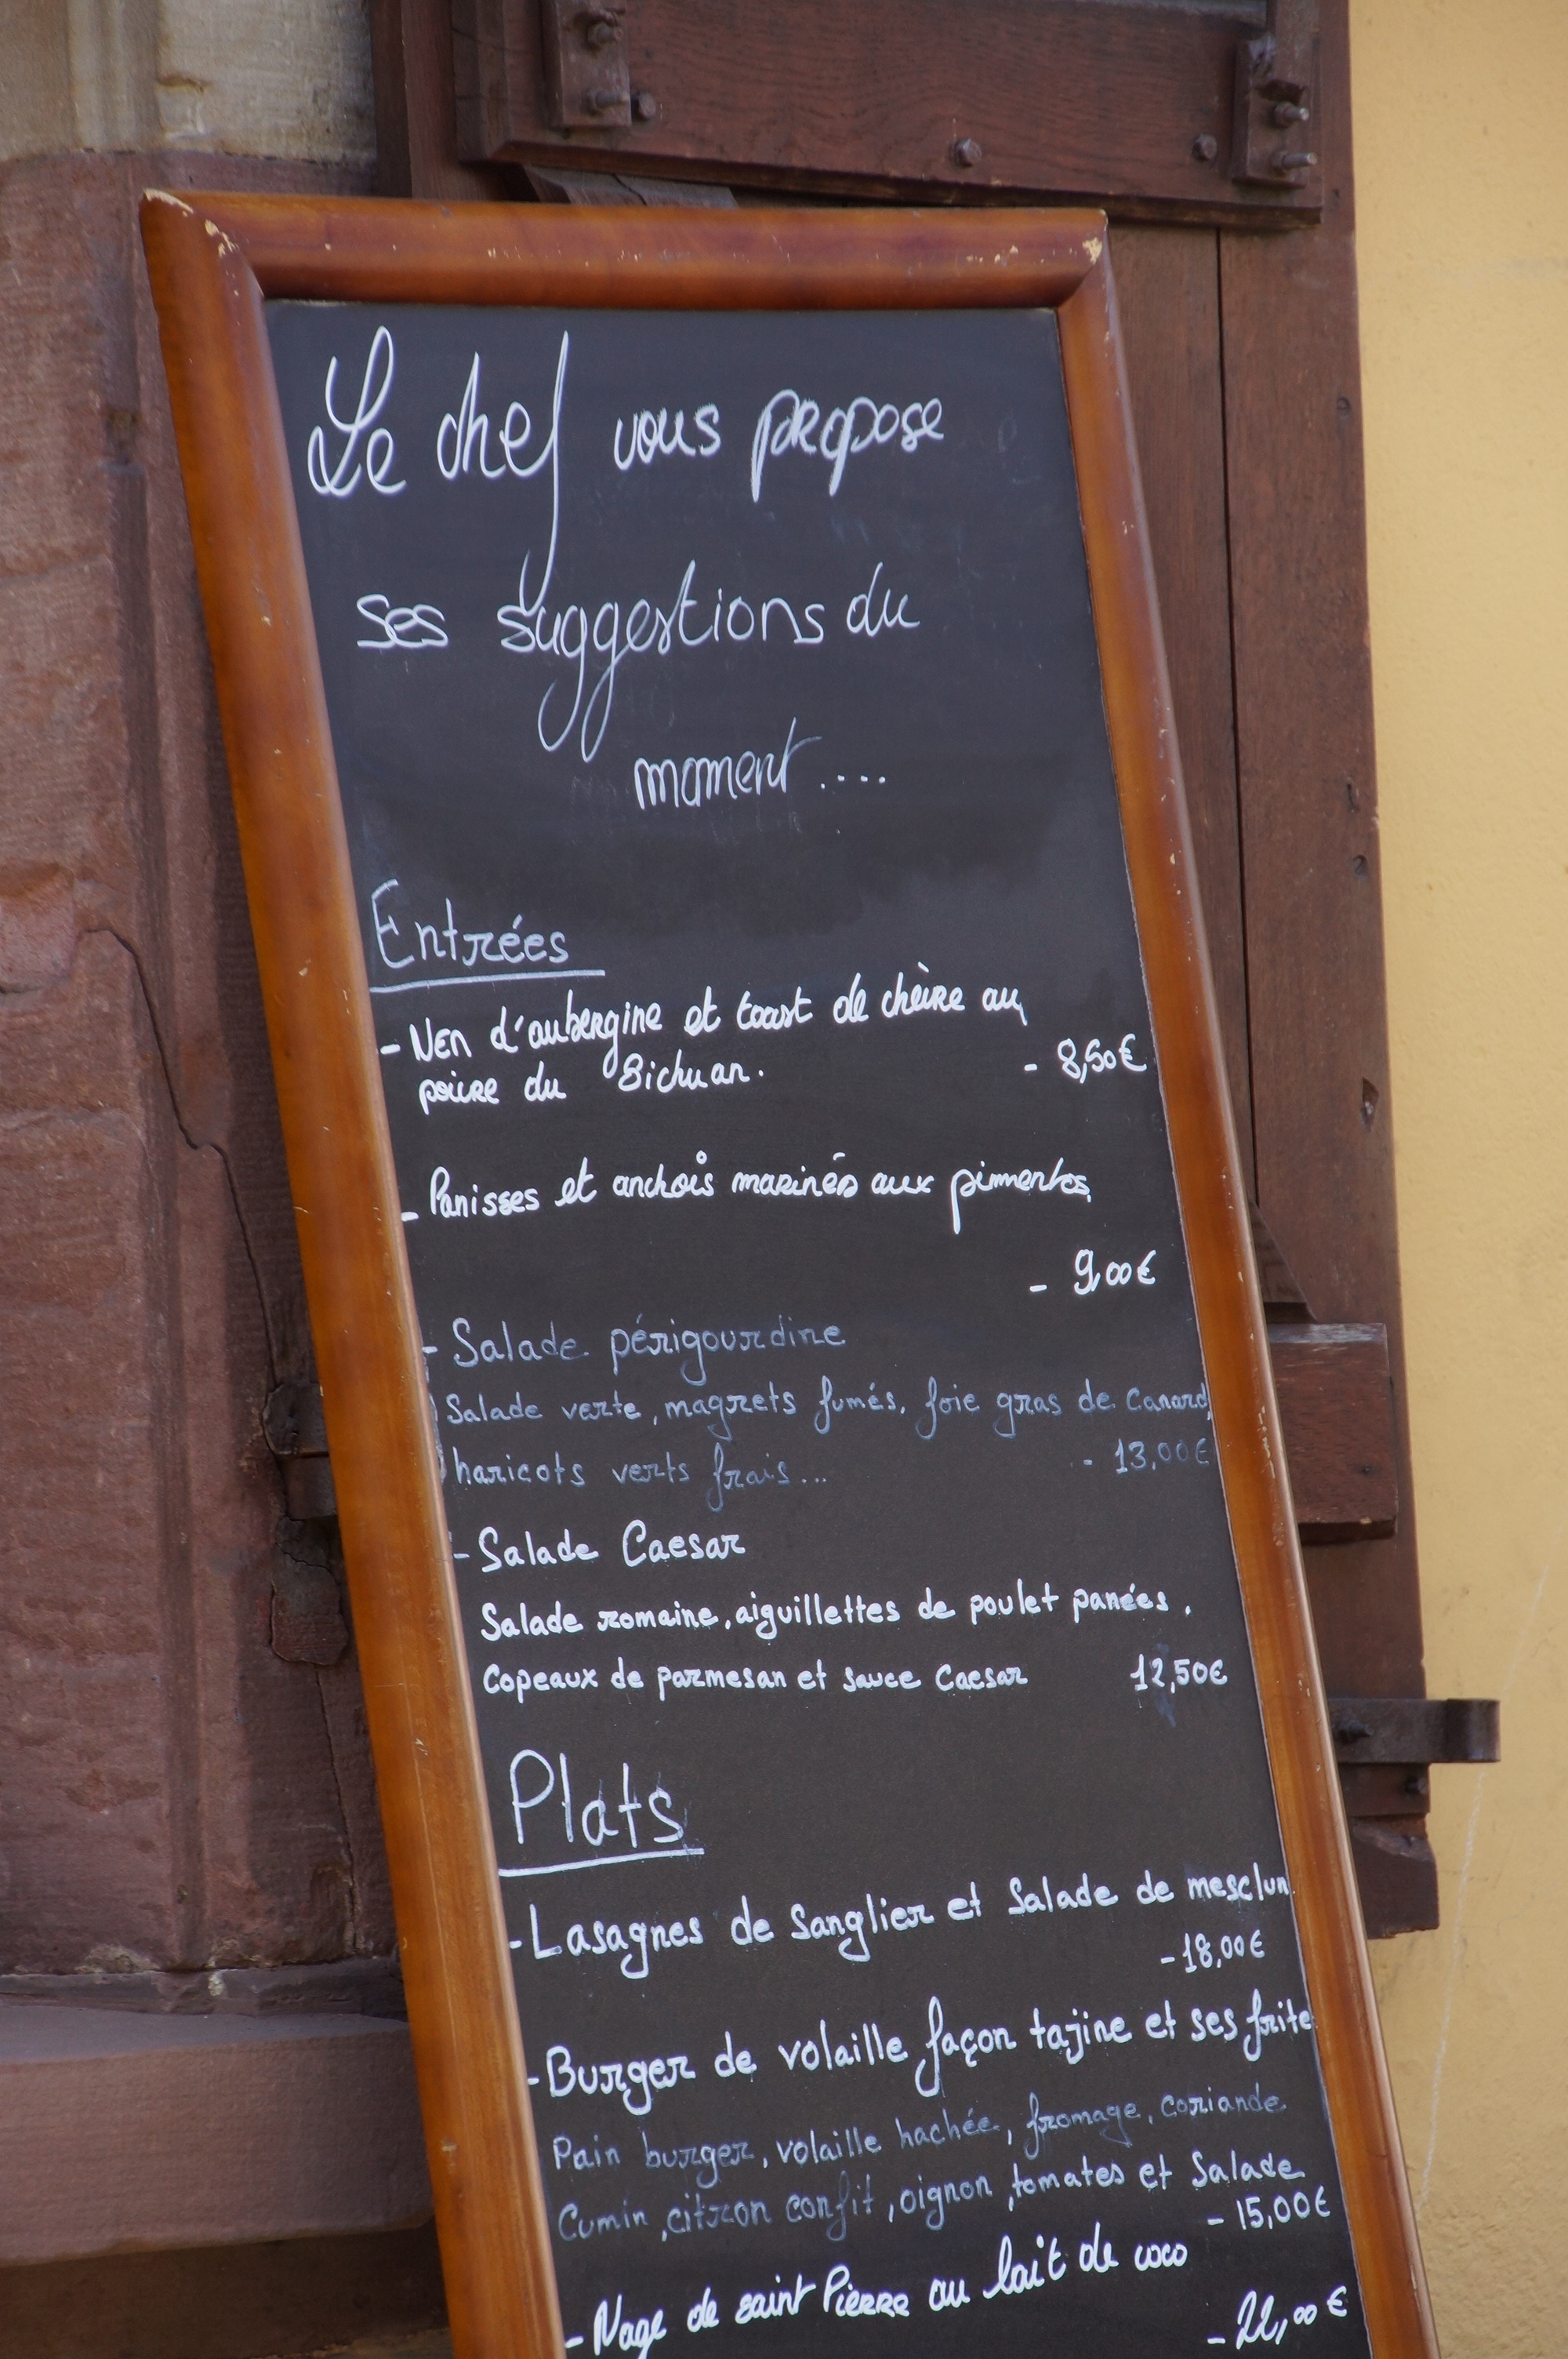 Le chef vous propose
ses suggestions du
moment ....
Entrées
- Nem d'aubergine et toast de chèvre au
poivre du Sichuan.
- 8,50€
- Panisses et anchois marinés aux piments
- 9,00€
- Salade périgourdine
Salade verte, magrets fumés, foie gras de Canard,
haricots verts frais...
- 13,00€
- Salade Caesar
Salade romaine, aiguillettes de poulet panées,
Copeaux de parmesan et sauce Caesar 12,50€
Plats
- Lasagnes de Sanglier et Salade de mesclun
- 18,00€
- Burger de volaille façon tajine et ses frite
Pain burger, volaille hachée, fromage, coriande
Cumin, citron confit, oignon, tomates et Salade
- 15,00€
- Nage de saint Pierre au lait de coco
- 22,00€